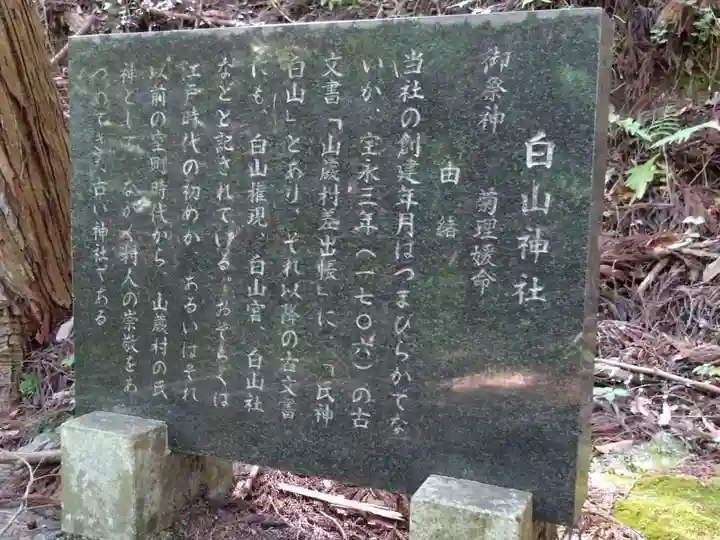 白山神社
御祭神　菊理媛命
由緒
当社の創建年月はつまびらかでな
いが、宝永三年（一七〇六）の古
文書「山蔵村差出帳」に、「氏神
白山」とあり、それ以降の古文書
にも、白山権現、白山宮、白山社
などと記されている。おそらくは
江戸時代の初めか、あるいはそれ
以前の室町時代から、山蔵村の氏
神として、ながく村人の崇敬をあ
つめてきた古い神社である